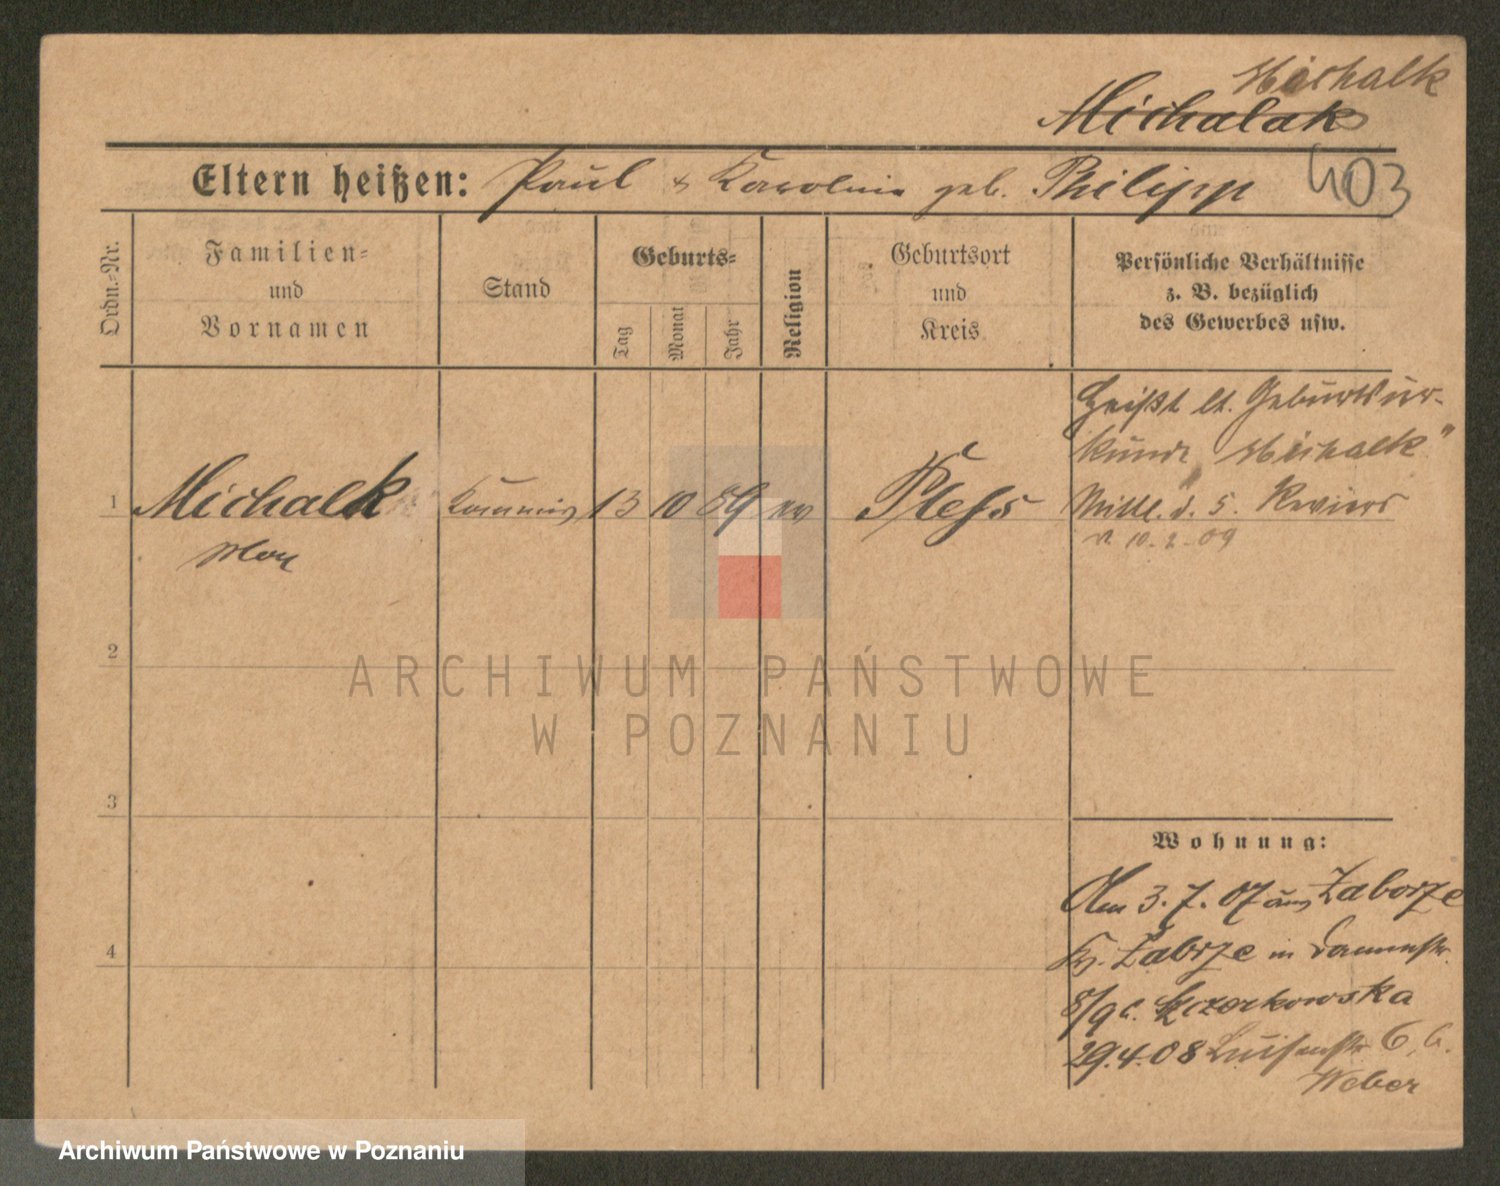 Michalk
Michalak
Eltern heißen: Paul & Karolina geb. Philipp 403
Ordn.-Nr.
Familien-
und
Vornamen
Stand
Geburts-
Tag
Monat
Jahr
Religion
Geburtsort
und
Kreis
Persönliche Verhältnisse
z. B. bezüglich
des Gewerbes usw.
1 Michalk Kommis 13 10 89 ev Pless
Max
Heißt lt. Geburtsur-
kunde „Michalk"
Mittl. d. 5. Reviers
v. 10. 2. 09
2
3
4
Wohnung:
Am 3. 7. 07 aus Zaborze
Kr. Zabrze in
8/9 b.
29.4.08 Luisenstr 6, b.
Weber
ARCHIWUM PAŃSTWOWE
W POZNANIU
Archiwum Państwowe w Poznaniu